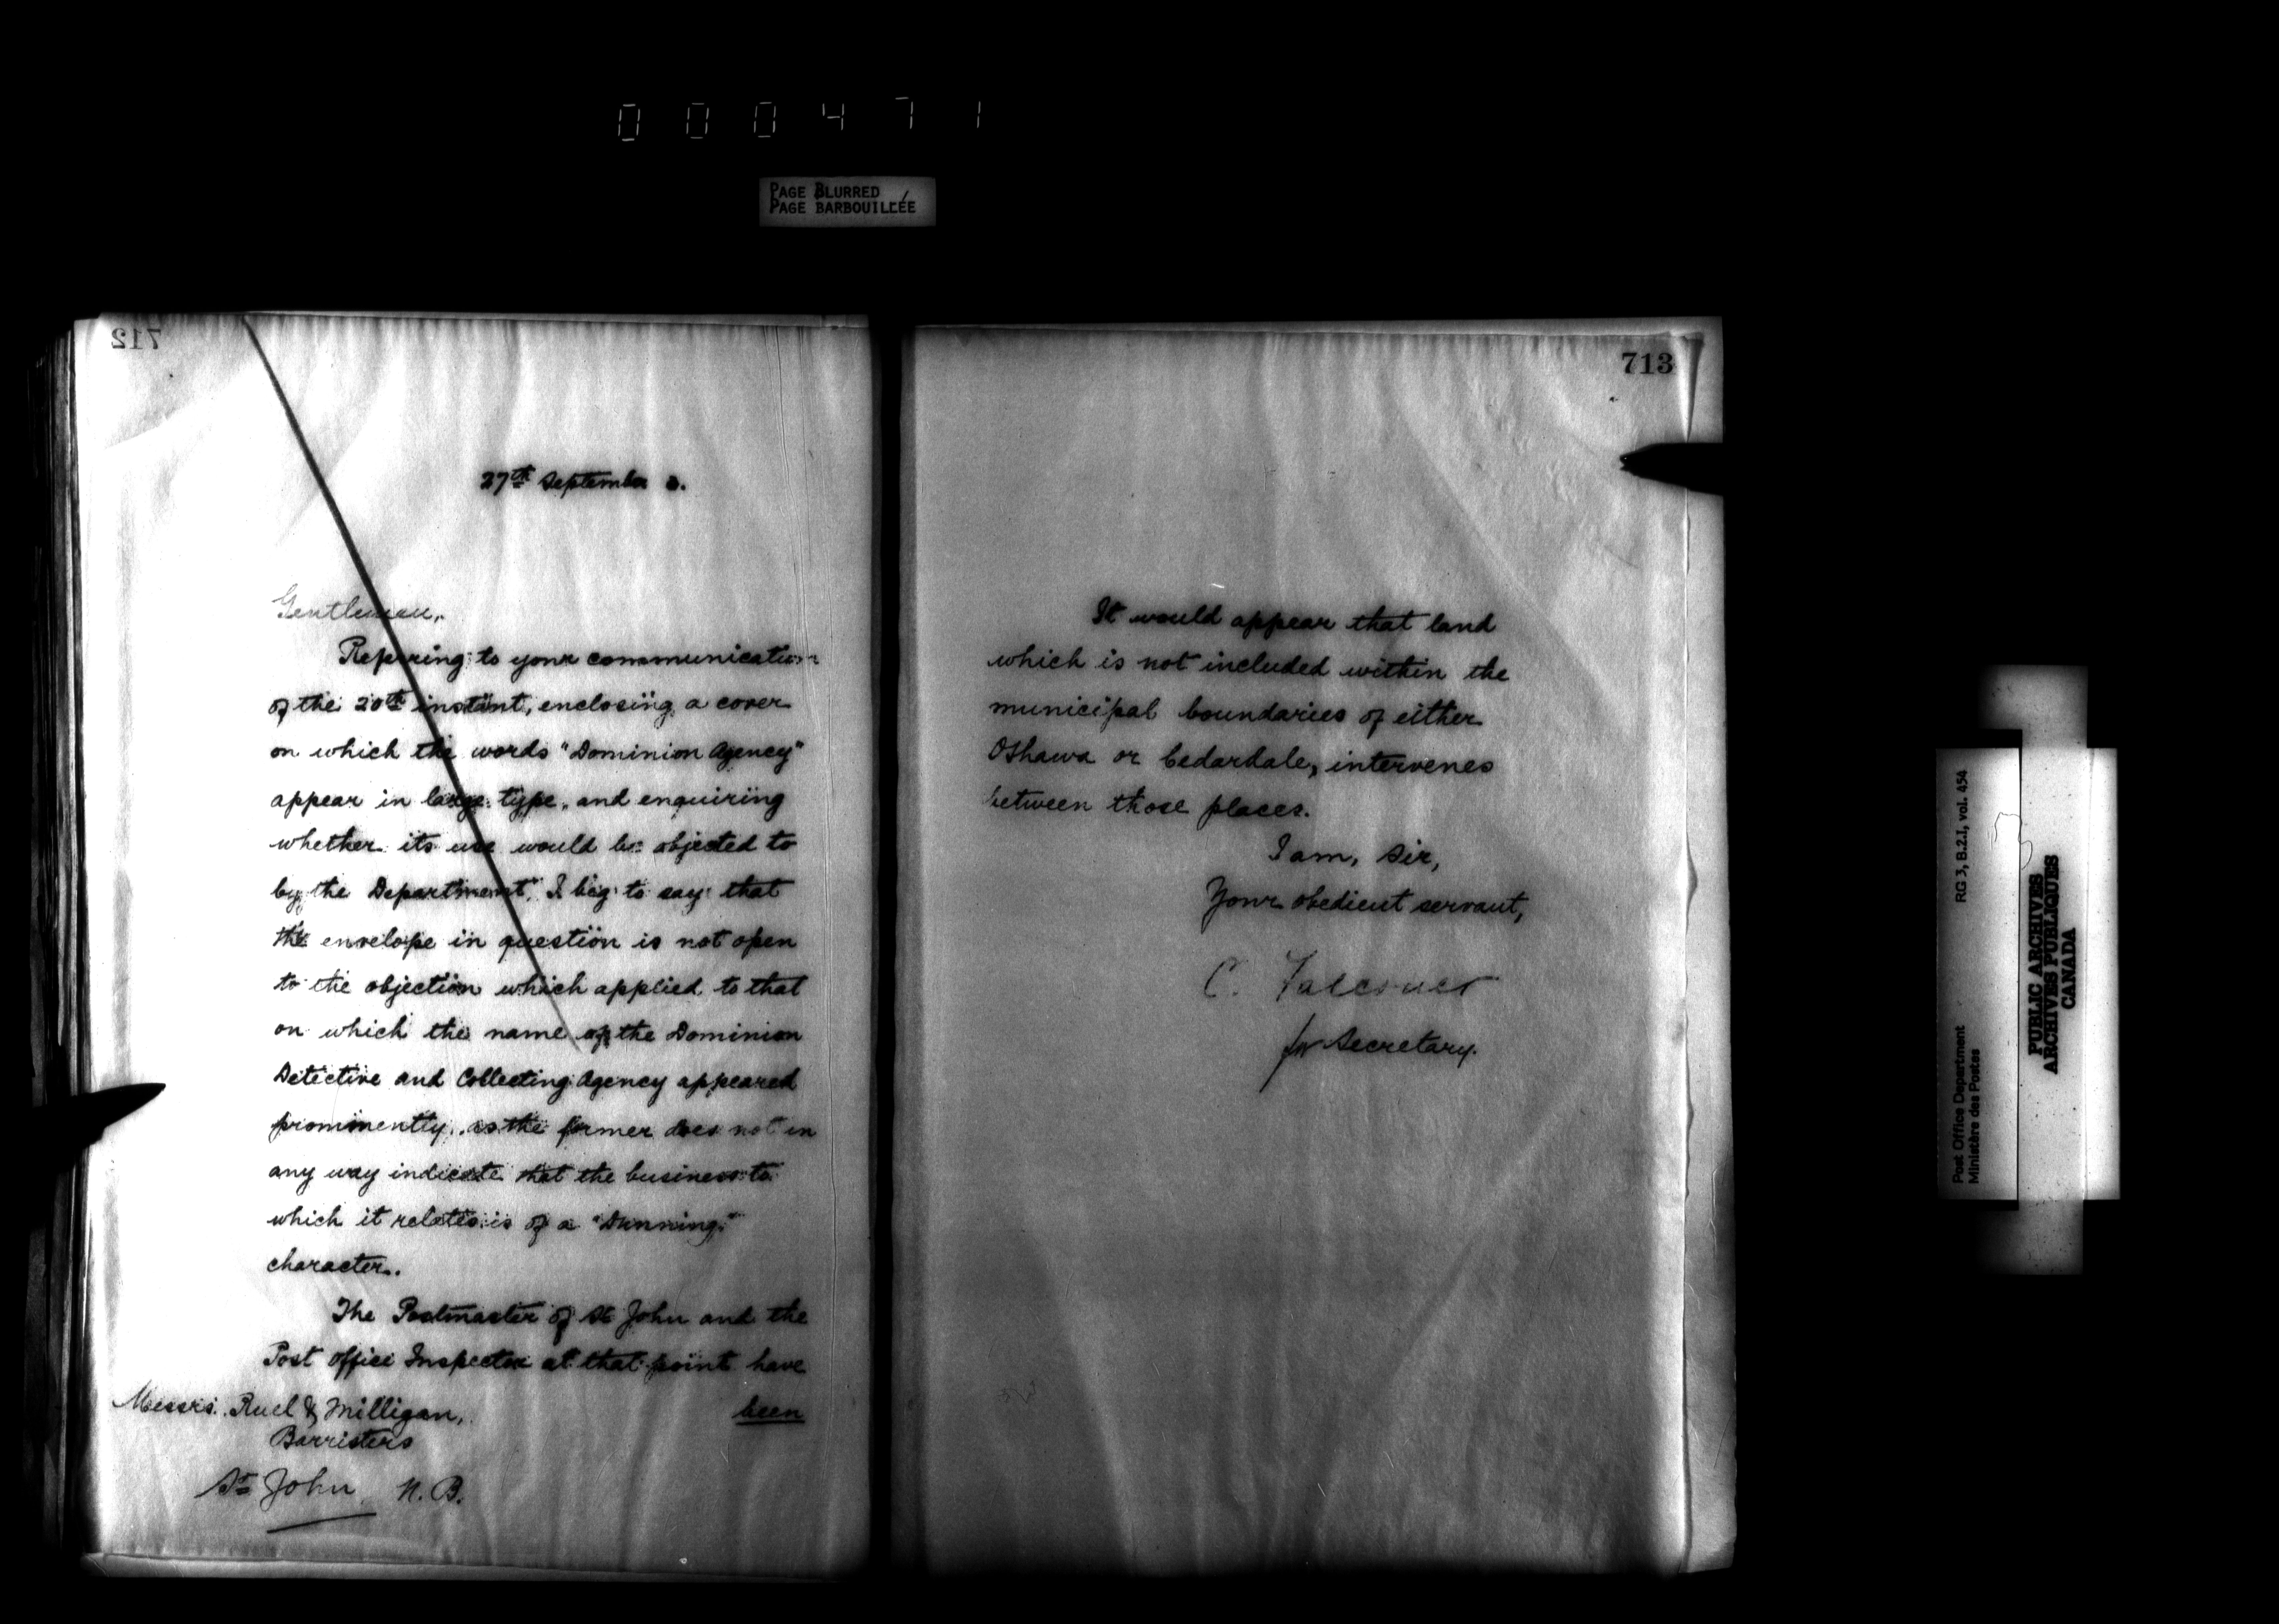 000471
PAGE BLURRED
PAGE BARBOUILLÉE
712
27th September
Gentlemen,
Referring to your communication
of the 20th instant, enclosing a cover
on which the words "Dominion Agency"
appear in large type, and enquiring
whether its use would be objected to
by the Department, I beg to say that
the envelope in question is not open
to the objection which applied to that
on which the name of the Dominion
Detective and Collecting Agency appeared
prominently, as the former does not in
any way indicate that the business to
which it relates is of a "Dunning"
character.
The Postmaster of St John and the
Post Office Inspector at that point have
been
Messrs. Ruel & Milligan,
Barristers
St John N.B.
713
It would appear that land
which is not included within the
municipal boundaries of either
Oshawa or Cedardale, intervenes
between those places.
I am, Sir,
Your obedient servant,
C.
for Secretary.
Post Office Department
Ministère des Postes
RG 3, B.2.I, vol. 454
PUBLIC ARCHIVES
ARCHIVES PUBLIQUES
CANADA